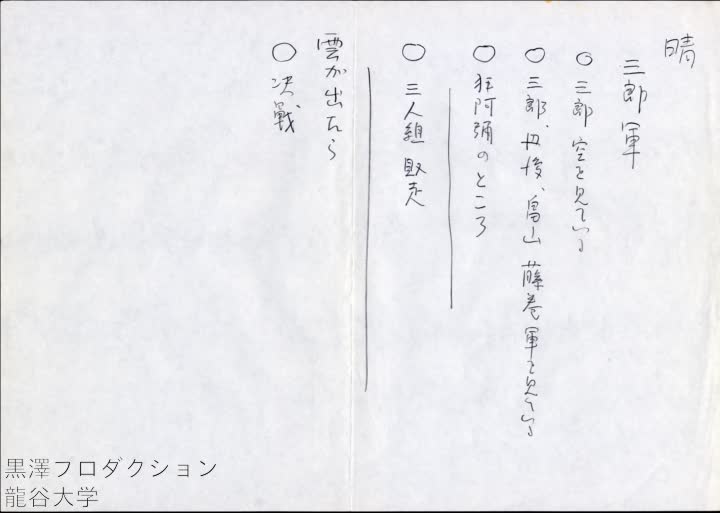 晴
三郎軍
○ 三郎 空を見ている
○ 三郎、丹後、畠山 藤巻軍を見ている
○ 狂阿彌のところ
○ 三人組 敗走
雲が出たら
○ 決戦
黒澤プロダクション
龍谷大学